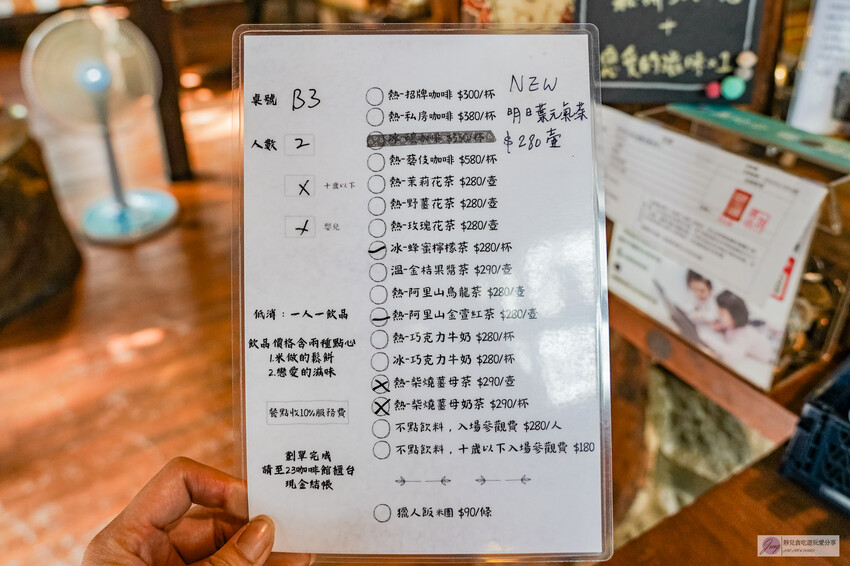 桌號 B3
人數 2
X 十歲以下
X 嬰兒
低消：一人一飲品
飲品價格含兩種點心
1.米做的鬆餅
2.戀愛的滋味
餐點收10%服務費
劃單完成
請至23咖啡館櫃台
現金結帳
熱-招牌咖啡 $300/杯
熱-私房咖啡 $380/杯
熱-藝伎咖啡 $580/杯
熱-茉莉花茶 $280/壺
熱-野薑花茶 $280/壺
熱-玫瑰花茶 $280/壺
冰-蜂蜜檸檬茶 $280/杯
溫-金桔果醬茶 $290/壺
熱-阿里山烏龍茶 $280/壺
熱-阿里山金萱紅茶 $280/壺
熱-巧克力牛奶 $280/杯
冰-巧克力牛奶 $280/杯
熱-柴燒薑母茶 $290/壺
熱-柴燒薑母奶茶 $290/杯
不點飲料，入場參觀費 $280/人
不點飲料，十歲以下入場參觀費 $180
獵人飯米團 $90/條
NEW
明日葉元氣茶
$280壺
+
戀愛的滋味x1
靜兒貪吃遊玩愛分享